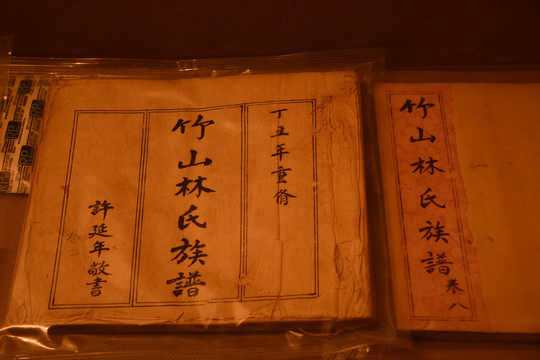 丁丑年重脩
竹山林氏族譜
許延年敬書
竹山林氏族譜
卷八